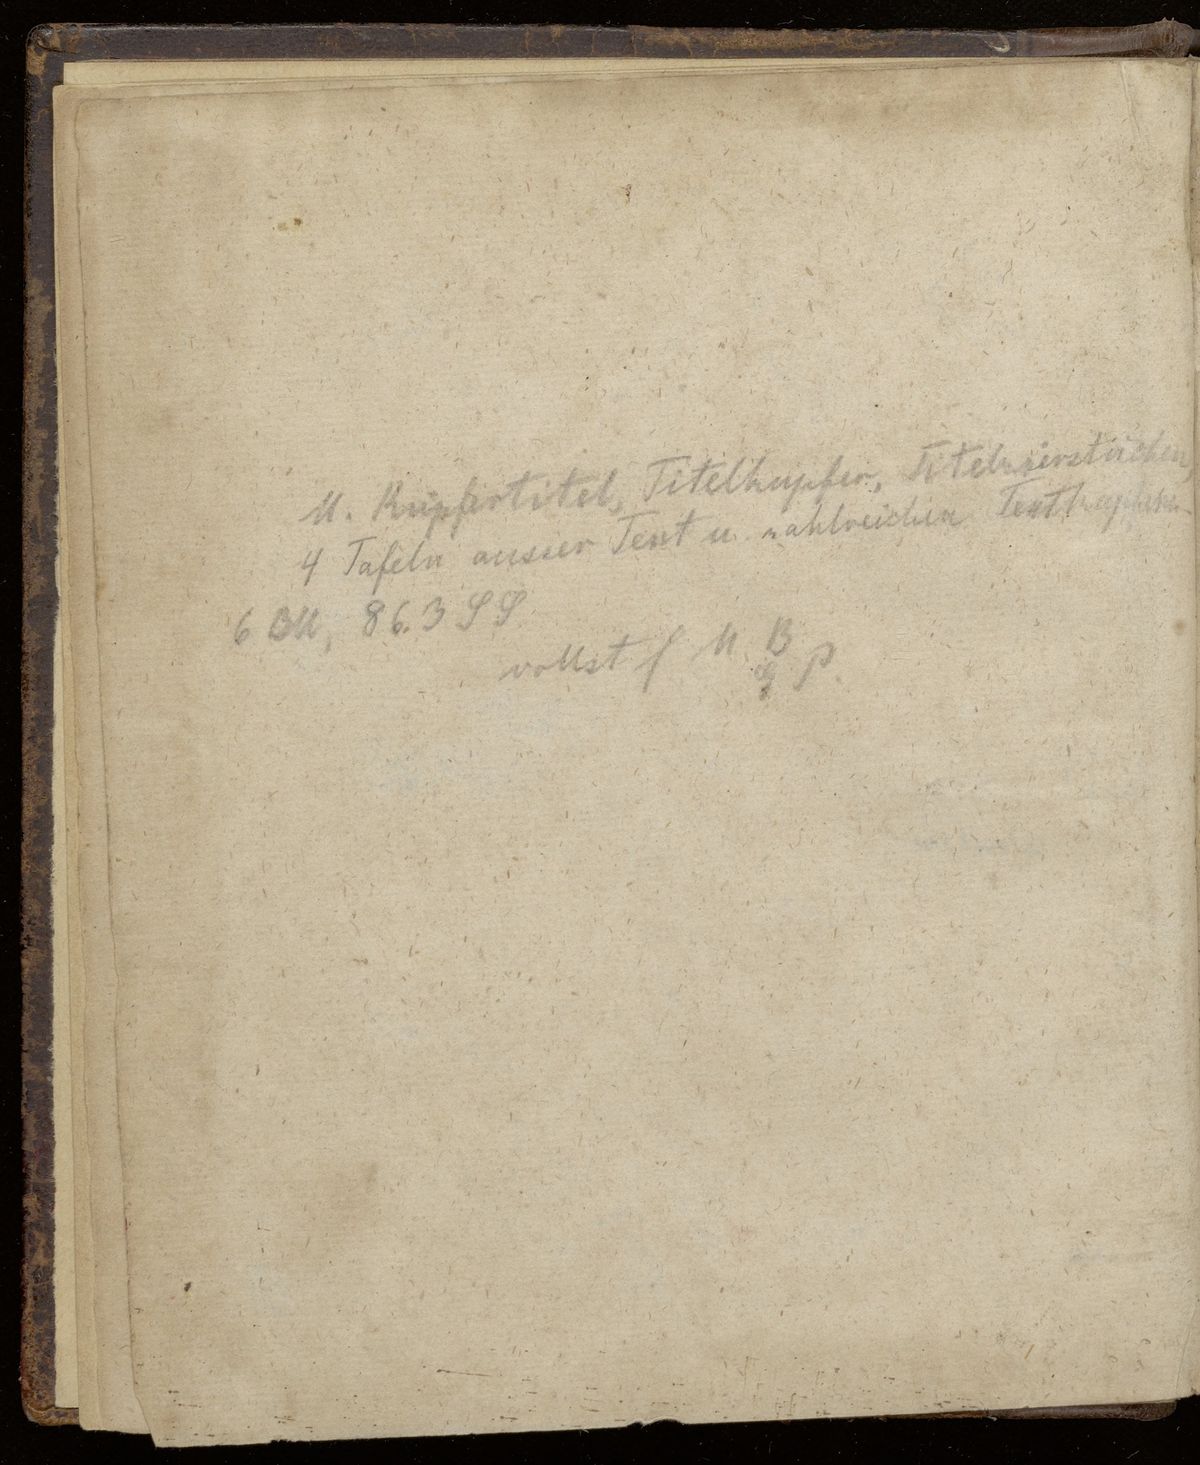 M. Kupfertitel, Titelkupfer, Titelzierstücken,
4 Tafeln ausser Text u. zahlreichen Textkupfern
6 Bll, 86.3 SS
vollst f M B
G P.